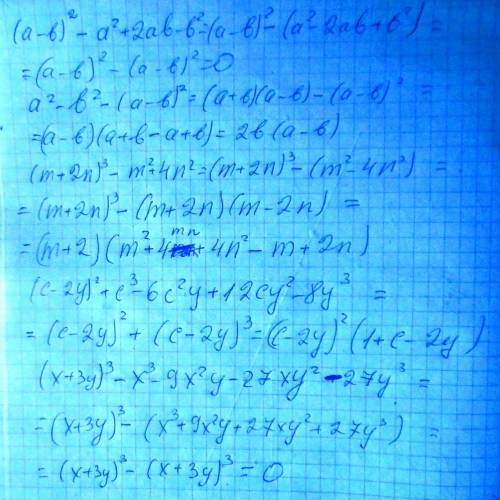 (a-b)² - a² + 2ab - b² = (a-b)² - (a² - 2ab + b²) =
= (a-b)² - (a-b)² = 0
a² - b² - (a-b)² = (a+b)(a-b) - (a-b)² =
= (a-b)(a+b-a+b) = 2b(a-b)
(m+2n)³ - m² + 4n² = (m+2n)³ - (m² - 4n²) =
= (m+2n)³ - (m+2n)(m-2n) =
= (m+2)(m² + 4mn + 4n² - m + 2n)
(c-2y)² + c³ - 6c²y + 12cy² - 8y³ =
= (c-2y)² + (c-2y)³ = (c-2y)²(1+c-2y)
(x+3y)³ - x³ - 9x²y - 27xy² - 27y³ =
= (x+3y)³ - (x³ + 9x²y + 27xy² + 27y³) =
= (x+3y)³ - (x+3y)³ = 0